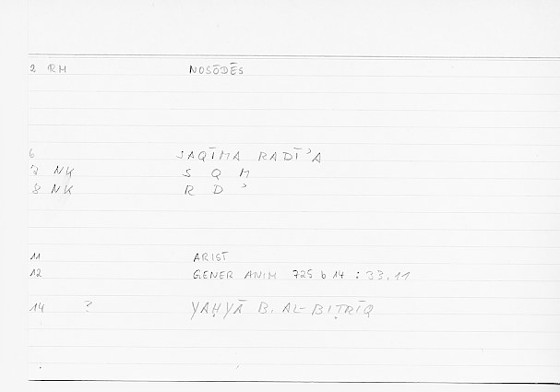 2 RH NOSŌDĒS
6 SAQĪMA RADĪʾA
7 NK S Q M
8 NK R D ʾ
11 ARIST
12 GENER ANIM 725 b 14 : 33.11
14 ? YAḤYĀ B. AL-BIṬRĪQ